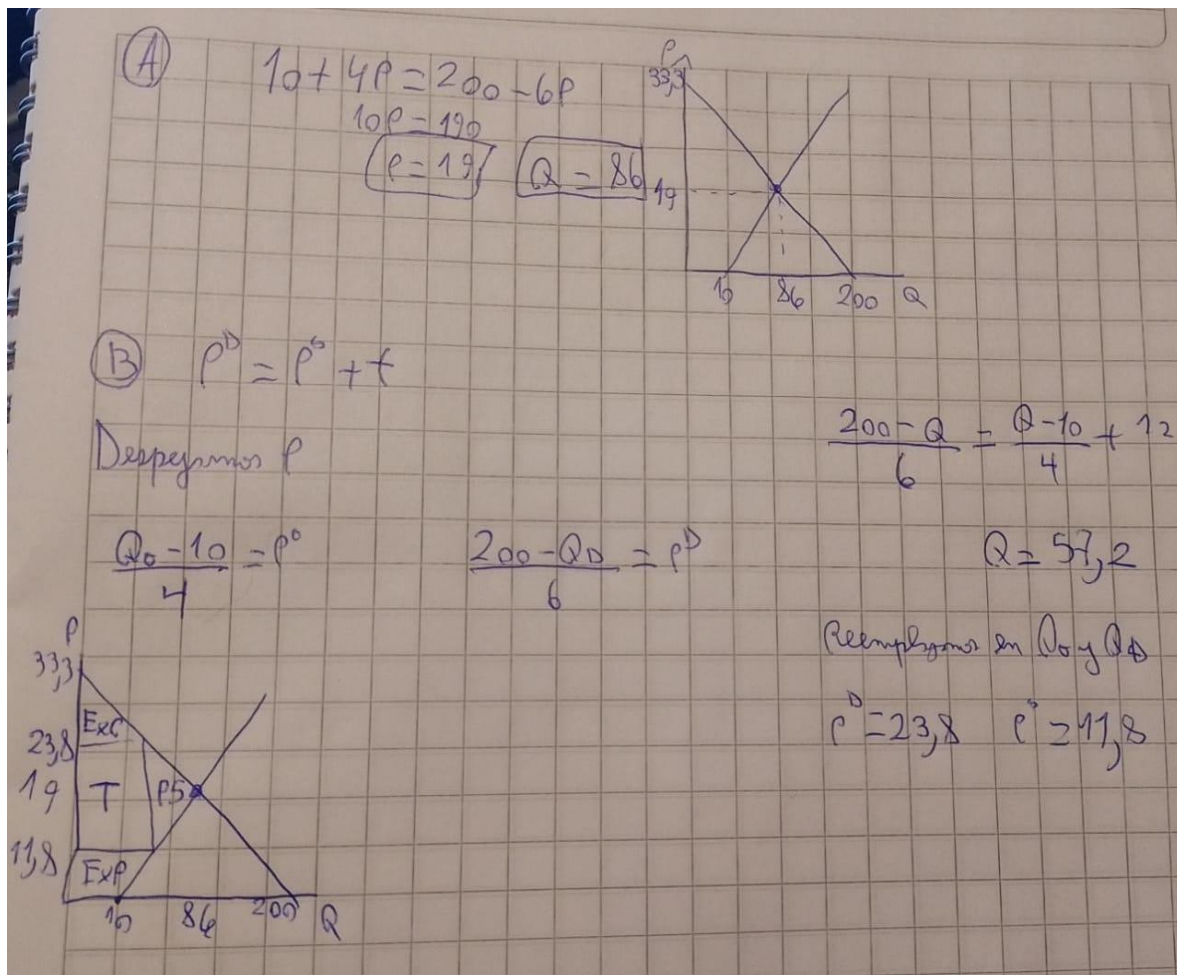 A
10 + 4P = 200 - 6P
10P = 190
P = 19
Q = 86
P
33,3
19
10 86 200 Q
B
P^D = P^o + t
Despejamos P
(Qo - 10)/4 = P^o
(200 - QD)/6 = P^D
(200 - Q)/6 = (Q - 10)/4 + 12
Q = 57,2
Reemplazamos en Qo y QD
P^D = 23,8 P^o = 11,8
P
33,3
ExC
23,8
19 T PS
11,8
ExP
10 86 200 Q